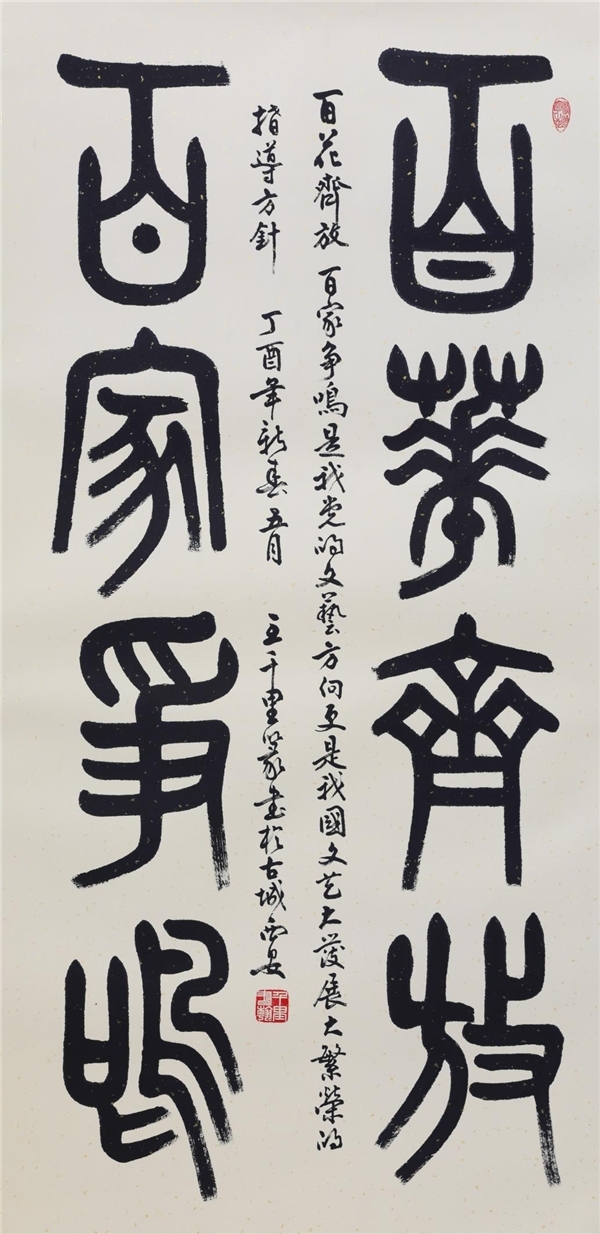 百華齊放
百花齊放 百家争鳴是我党的文藝方向更是我國文艺大發展大繁榮的
指導方針 丁酉年新春五月 王千里篆書於古城西安
百家爭鳴